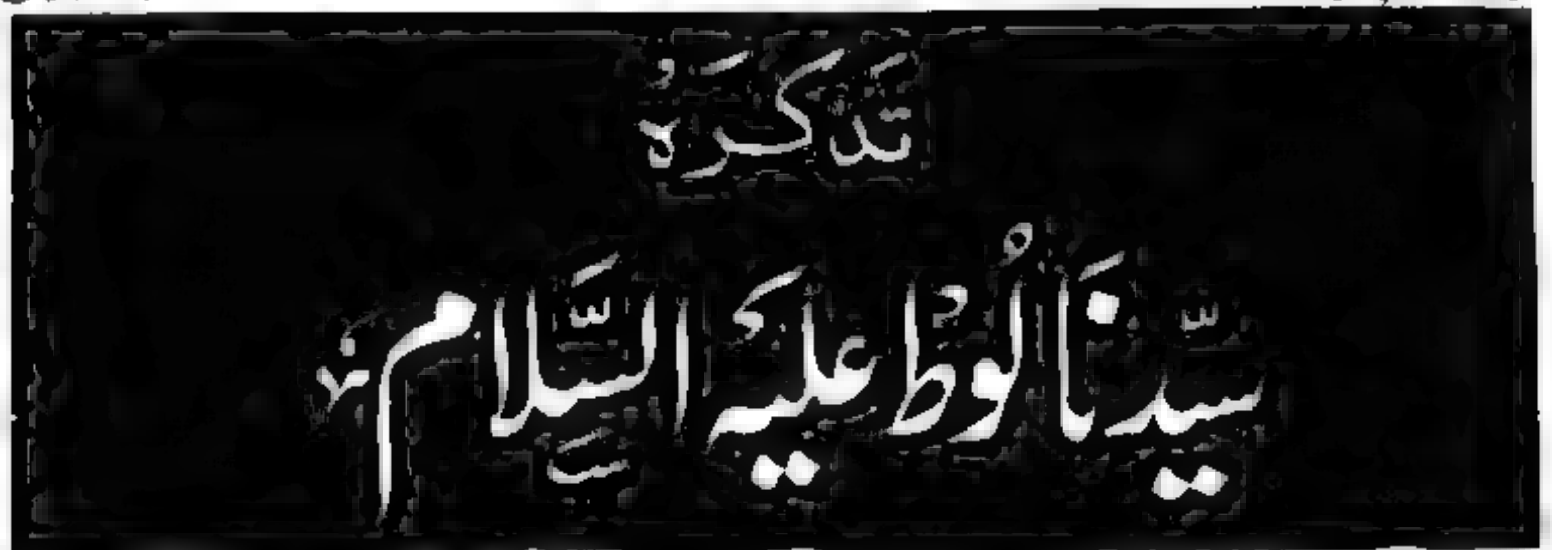 تَذکَرَہُ
سَیِّدنَا لُوطْ عَلَیہِ السَّلَام